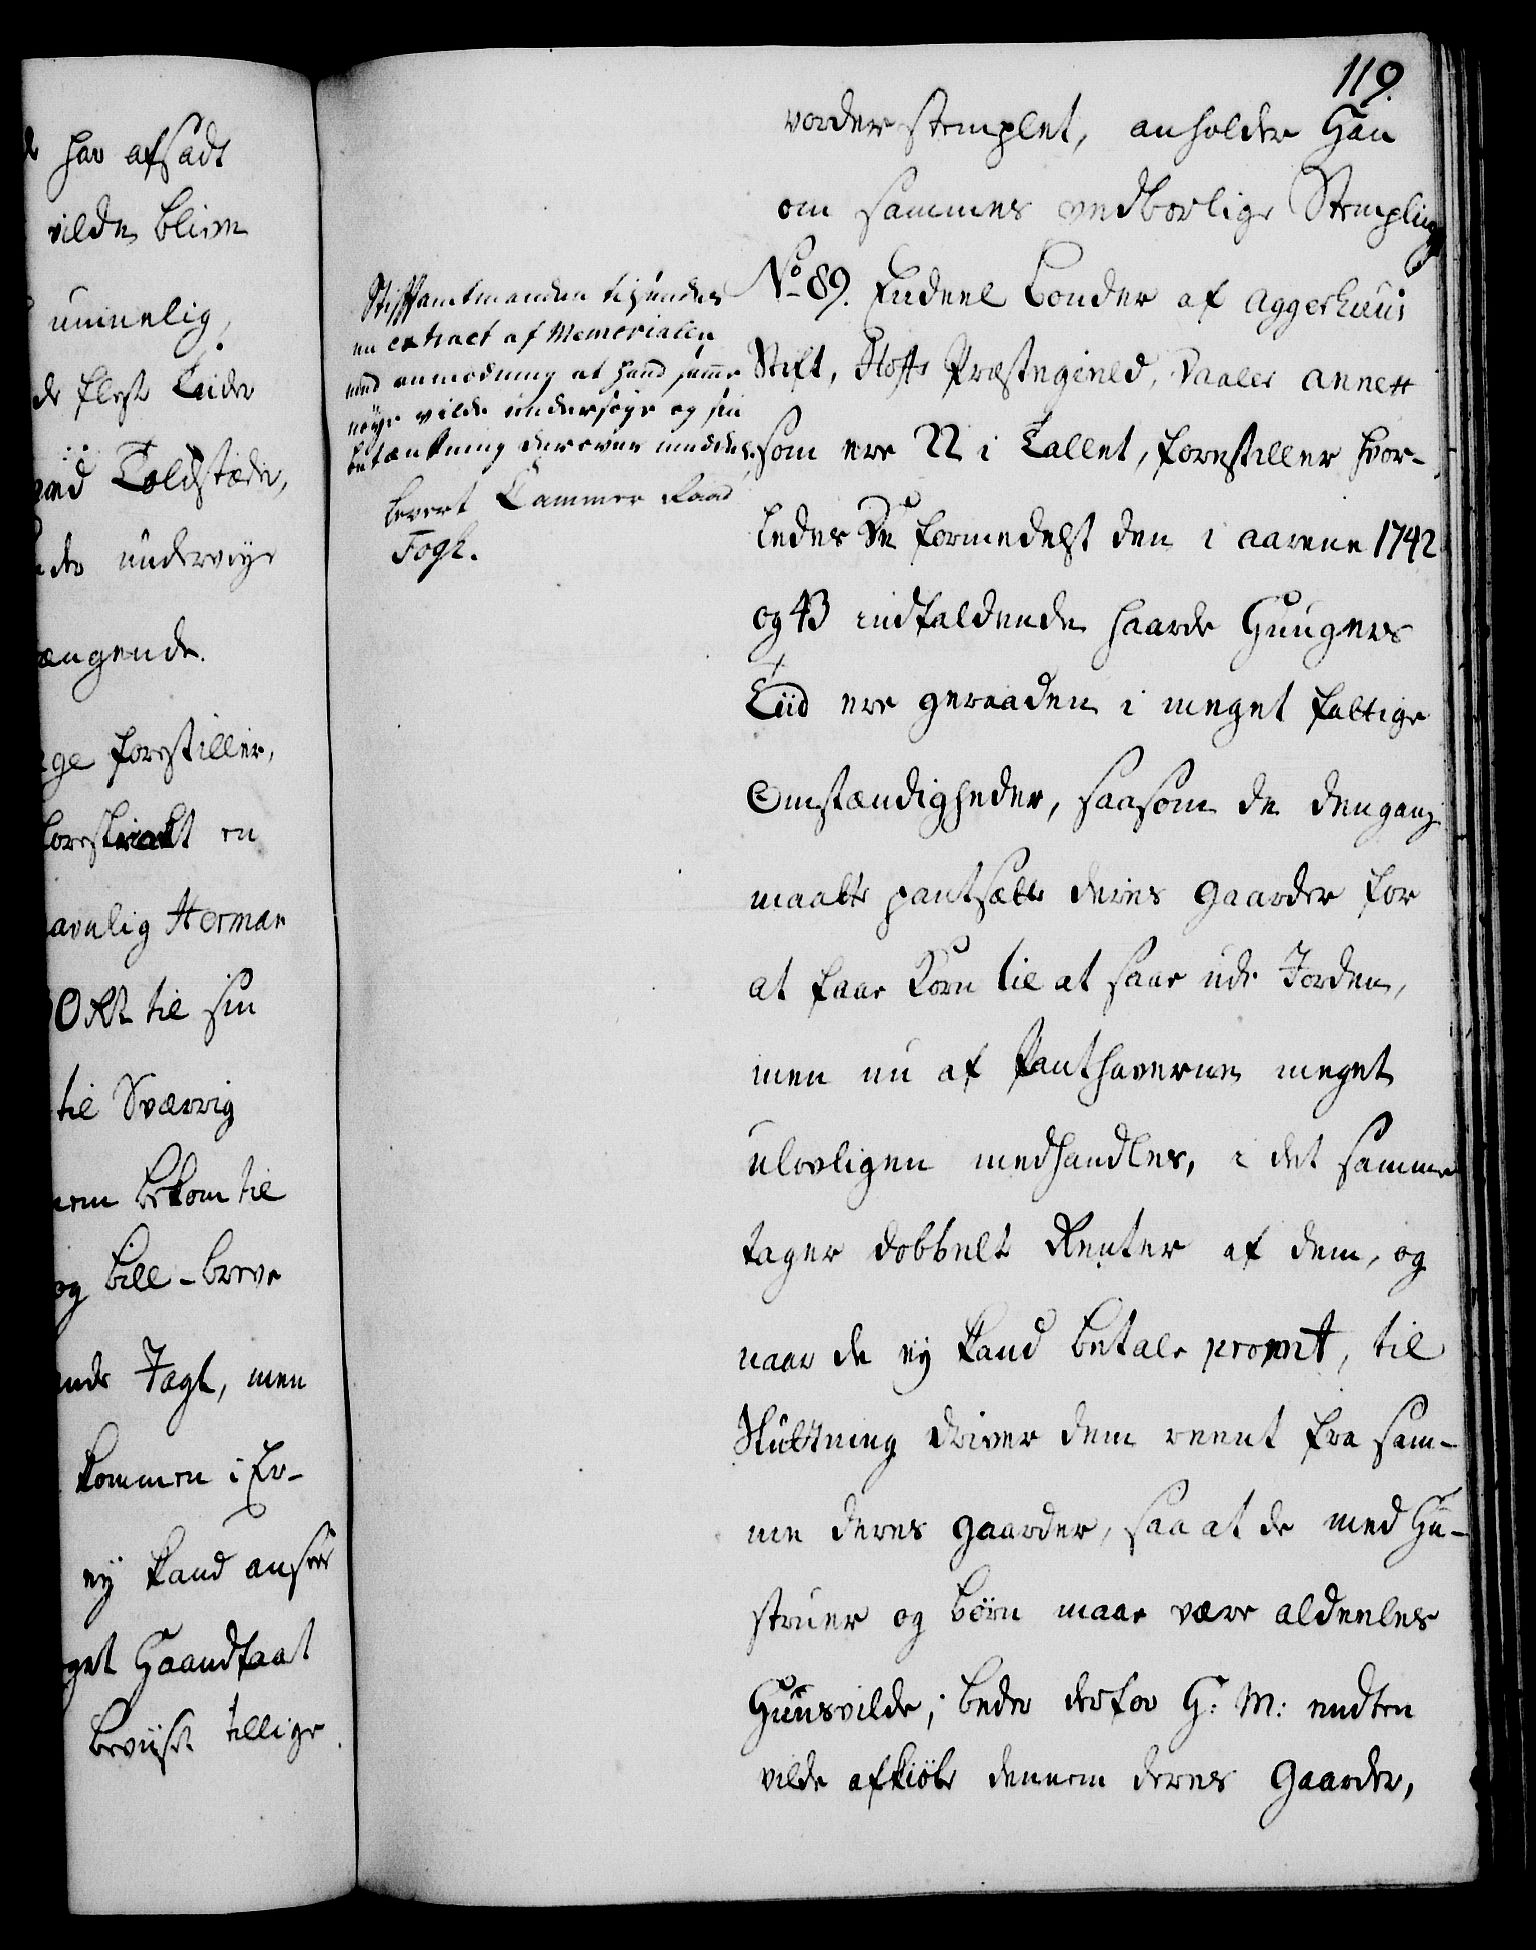 119.
har afsadt
vilde blive
umuelig,
de fleste Tiider
med Toldstæder,
underveys
hængende.
forestiller,
en
navnlig Herman
til sin
til Sverrig
bekom til
og bill-breve
Jagt, men
kommen i Er-
ey kand ansees
Haandfaat
beviist tillige
Stiftamtmanden tilsendes
en extract af Memorialen
med anmodning at hand samme
nøye vilde undersøge og sin
betænkning derover meddele.
levert Cammer Raad
Fogh.
vorder stemplet, anholder Han
om sammes vedborlige Stempling
No 89. Endeel bønder af Aggerhuus
Stift, Hofs Præstegield, Vaaler Annex
som ere 22 i Tallet, forestiller hvor-
ledes De formedelst den i aarene 1742
og 43 indfaldende haarde Hungers
Tiid ere geraaden i meget fattige
Omstændigheder, saasom de dengang
maatte pantsætte deres gaarder for
at faae Korn til at saae udi Jorden,
men nu af Panthaverne meget
ulovligen medhandles, i det samme
tager dobbelt Renter af dem, og
naar de ey kand betale promt, til
Slutning driver dem reent fra sam-
me deres gaarder, saa at de med Hu-
struer og børn maae være aldeeles
Huusvilde; beder derfor H: M: endten
vilde afkiøbe dennem deres Gaarder,